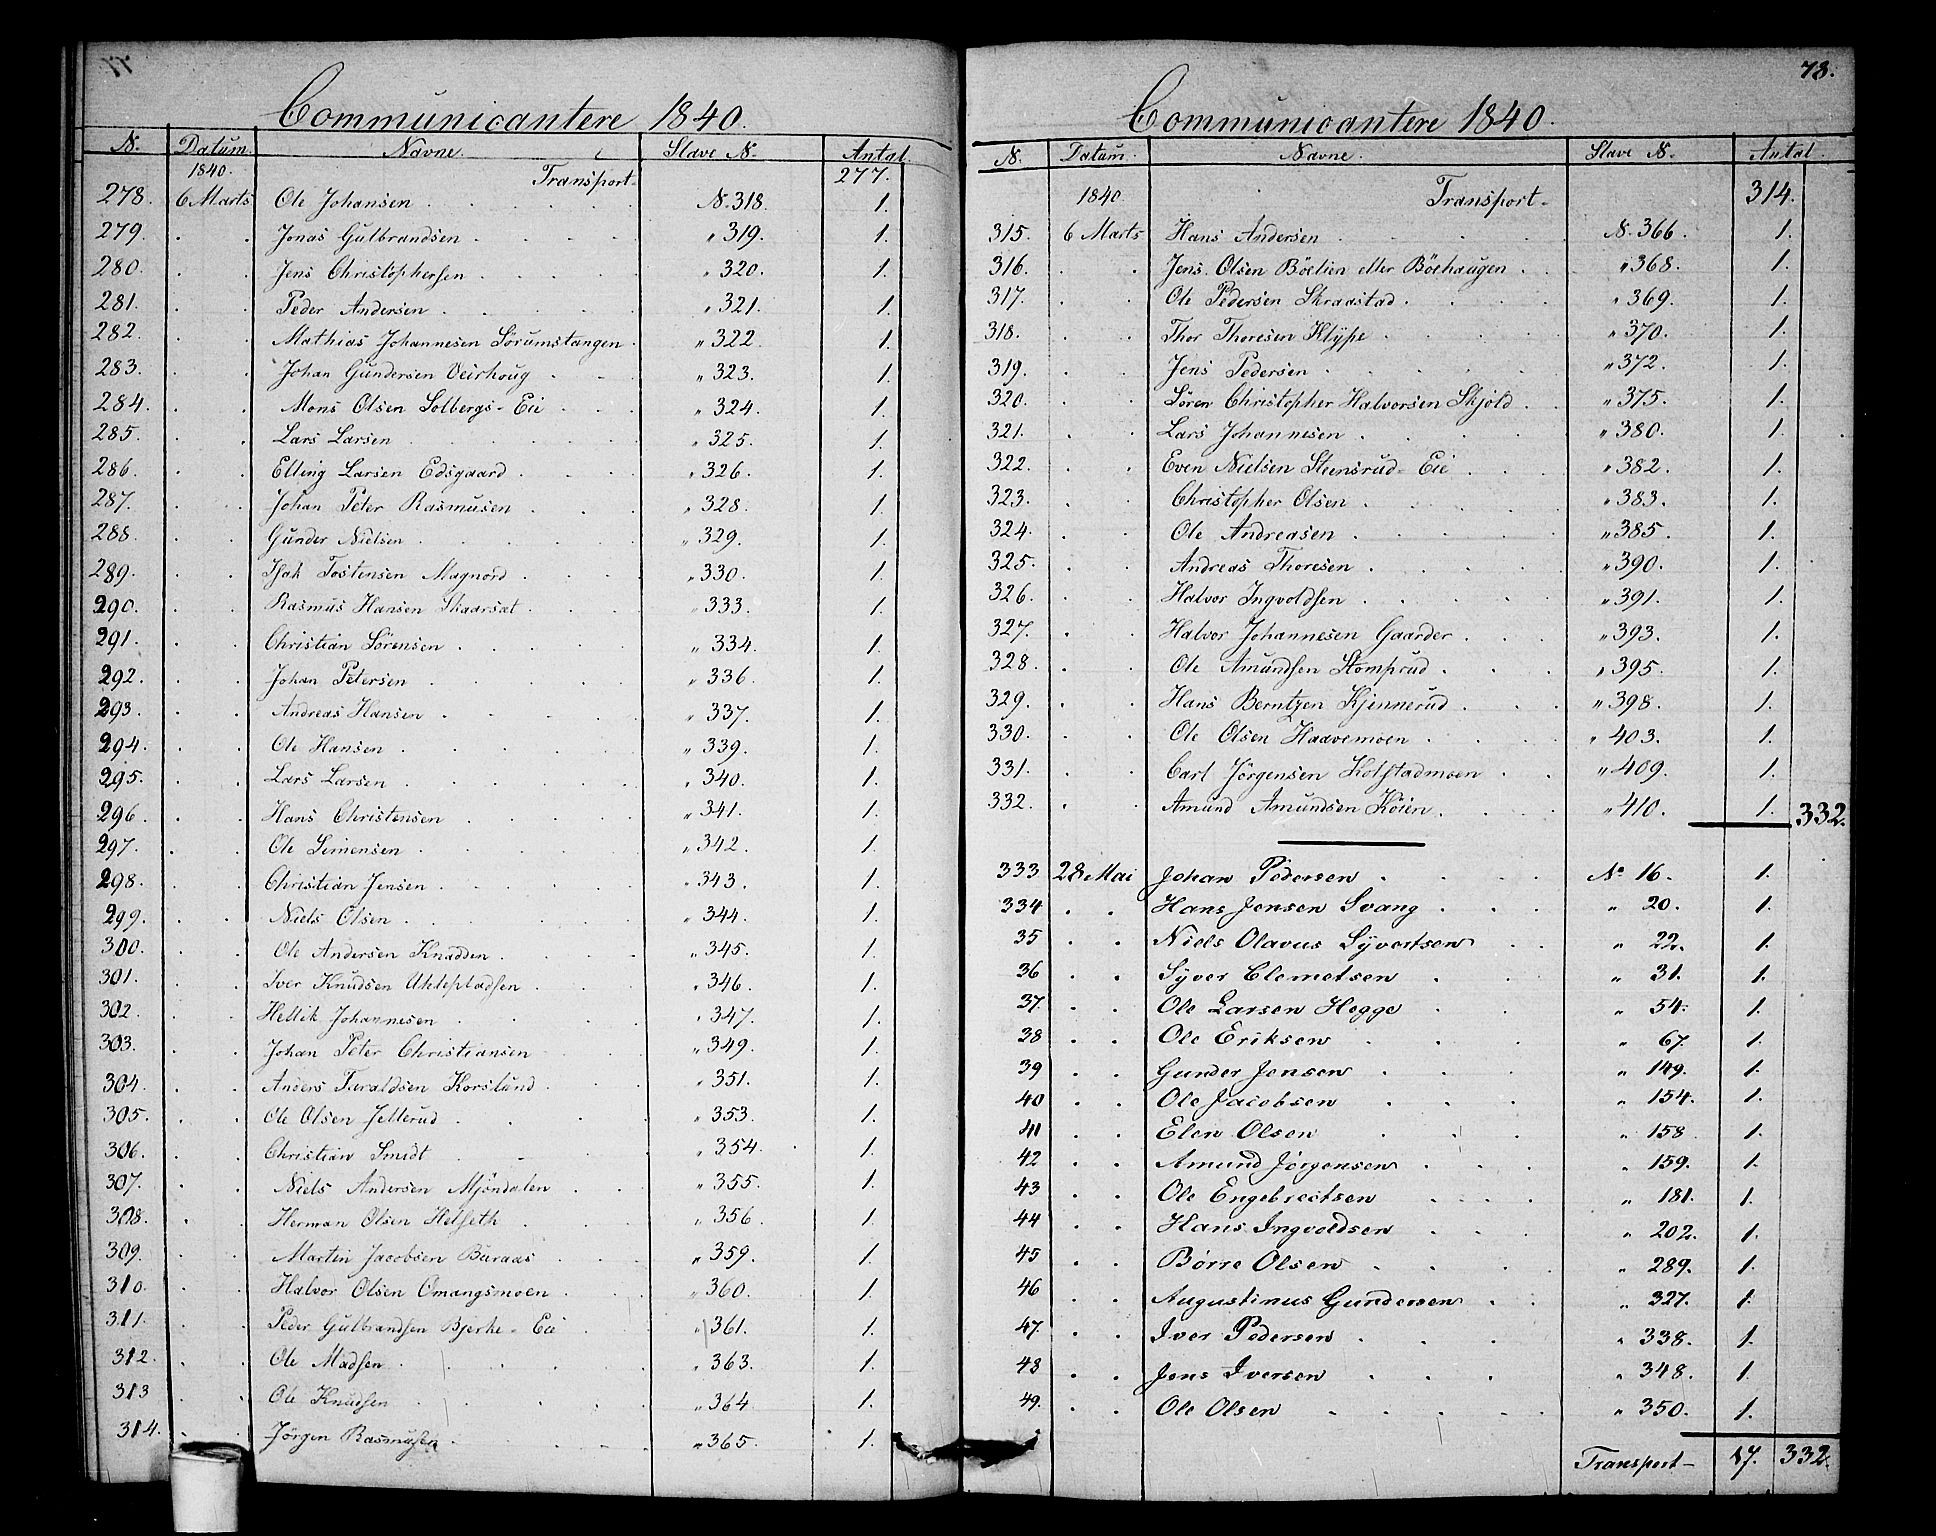 Communicantere 1840.
N. Datum. Navne. Slave N. Antal
1840. Transport 277.
278. 6 Marts Ole Johansen N. 318. 1.
279. Jonas Gulbrandsen " 319. 1.
280. Jens Christophersen " 320. 1.
281. Peder Andersen " 321. 1.
282. Mathias Johannesen Sörumstangen " 322. 1.
283. Johan Gundersen Veirhoug " 323. 1.
284. Mons Olsen Solbergs-Eie " 324. 1.
285. Lars Larsen " 325. 1.
286. Elling Larsen Edsgaard " 326. 1.
287. Johan Peter Rasmusen " 328. 1.
288. Gunder Nielsen " 329. 1.
289. Isak Tostensen Magnord " 330. 1.
290. Rasmus Hansen Skaarsæt " 333. 1.
291. Christian Sörensen " 334. 1.
292. Johan Petersen " 336. 1.
293. Andreas Hansen " 337. 1.
294. Ole Hansen " 339. 1.
295. Lars Larsen " 340. 1.
296. Hans Christensen " 341. 1.
297. Ole Simensen " 342. 1.
298. Christian Jensen " 343. 1.
299. Niels Olsen " 344. 1.
300. Ole Andersen Knadden " 345. 1.
301. Iver Knudsen " 346. 1.
302. Hellik Johannesen " 347. 1.
303. Johan Peter Christiansen " 349. 1.
304. Anders Taraldsen Korslund " 351. 1.
305. Ole Olsen Jellerud " 353. 1.
306. Christian Smidt " 354. 1.
307. Niels Andersen Mjöndalen " 355. 1.
308. Herman Olsen Helseth " 356. 1.
309. Martin Jacobsen Buraas " 359. 1.
310. Halvor Olsen Omangsmoen " 360. 1.
311. Peder Gulbrandsen Bjerke-Eie " 361. 1.
312. Ole Madsen " 363. 1.
313 Ole Knudsen " 364 1.
314. Jörgen Rasmusen " 365. 1.
78.
Communicantere 1840.
N. Datum. Navne. Slave N. Antal.
1840. Transport 314.
315. 6 Marts Hans Andersen N. 366. 1.
316. Jens Olsen Böelien eller Böehaugen " 368. 1.
317. Ole Pedersen Skraastad " 369. 1.
318. Thor Thoresen Klype " 370. 1.
319. Jens Pedersen " 372. 1.
320. Sören Christopher Halvorsen Skjöld " 375. 1.
321. Lars Johannesen " 380. 1.
322. Even Nielsen Steensrud-Eie " 382. 1.
323. Christopher Olsen " 383. 1.
324. Ole Andreasen " 385. 1.
325. Andreas Thoresen " 390. 1.
326. Halvor Ingvoldsen " 391. 1.
327. Halvor Johannesen Gaarder " 393. 1.
328. Ole Amundsen Stomprud " 395. 1.
329. Hans Berntzen Kjennerud " 398. 1.
330. Ole Olsen Haavemoen " 403. 1.
331. Carl Jörgensen Kolstadmoen " 409. 1.
332. Amund Amundsen Köien " 410. 1. 332.
333 28 Mai Johan Pedersen No 16. 1.
334 Hans Jensen Svang " 20. 1.
35 Niels Olavus Syvertsen " 22. 1.
36 Syver Clemetsen " 31. 1.
37. Ole Larsen Hegge " 54. 1.
38 Ole Eriksen " 67. 1.
39 Gunder Jensen " 149. 1.
40 Ole Jacobsen " 154. 1.
41 Elen Olsen " 158 1.
42 Amund Jørgensen " 159. 1.
43 Ole Engebrectsen " 181. 1.
44 Hans Ingvoldsen " 202. 1.
45 Børre Olsen " 289. 1.
46 Augustinus Gundersen " 327. 1.
47. Iver Pedersen " 338. 1.
48 Jens Iversen " 348. 1.
49. Ole Olsen " 350. 1.
Transport- 17. 332.